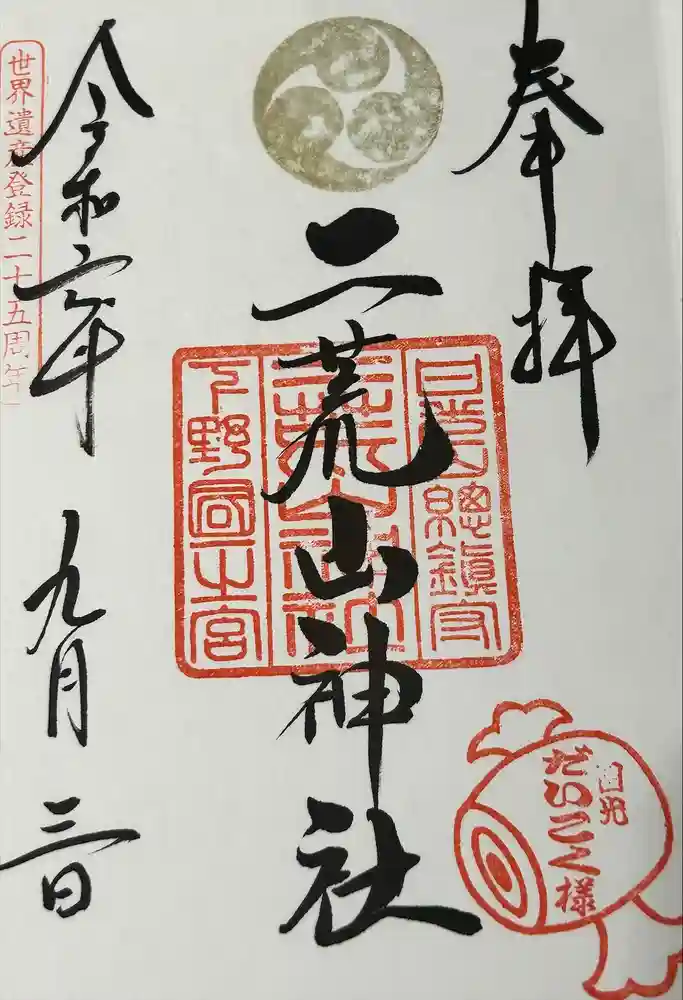 奉拝
日光山總鎮守
二荒山神社
二荒山神社
下野國一之宮
日光
だいこく様
令和二年 九月 三日
世界遺産登録二十五周年